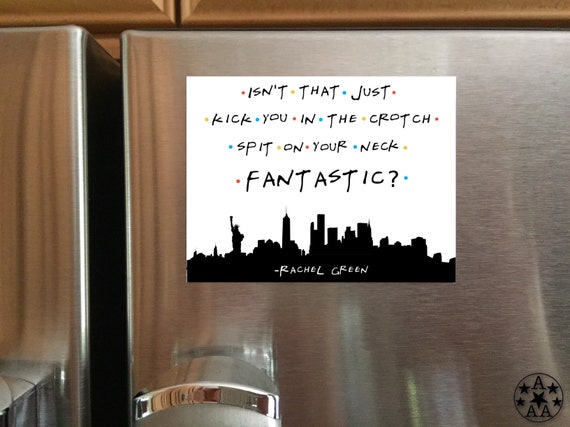 •ISN'T•THAT•JUST•
•KICK•YOU•IN•THE•CROTCH•
•SPIT•ON•YOUR•NECK•
•FANTASTIC?•
-RACHEL GREEN
A
A A
A A